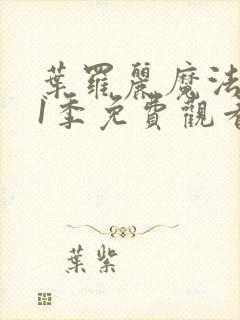 葉羅麗魔法
1季免費觀看
葉紫